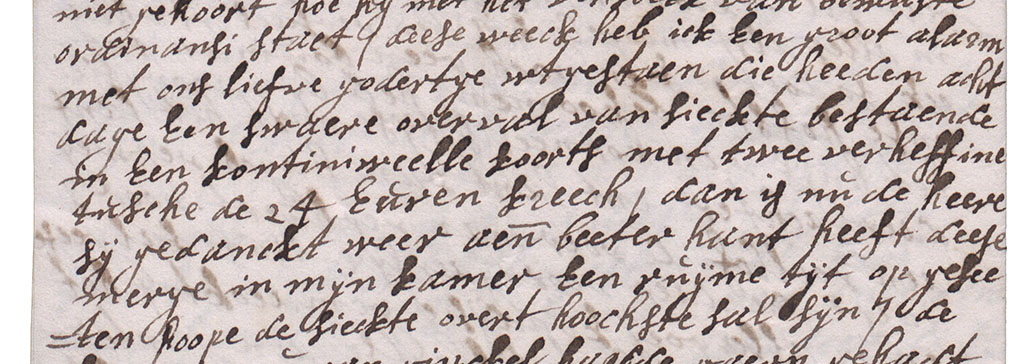 niet gehoort hoe hij met het versoeck van bewuste
ordinansi staet / deese weeck heb ick een groot alarm
met ons liefve godertge wtgestaen die heeden acht
dage een swaere overval van sieckte bestaende
in een kontiniweelle koorts met twee verheffine
tusche de 24 euren kreech / dan is nu de heere
sij gedanckt weer aen beeter hant heeft deese
merge in mijn kamer een ruijme tijt op gesee
=ten hoope de sieckte overt hoochste sal sijn / de